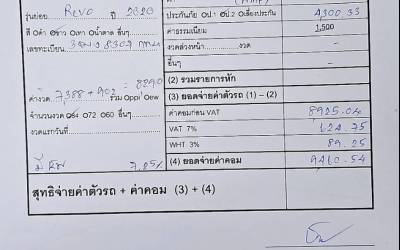 รุ่นย่อย Revo ปี 2020
สี ดำ ขาว เทา น้ำตาล อื่นๆ
เลขทะเบียน 8307
8290
ค่างวด 7,388 + 902 = รวม Oppi Oew
จำนวนงวด 84 072 060 อื่นๆ
งวดแรกวันที่
ประกันภัย ป1 ชั้น2 เบี้ยประกัน 4300.33
ค่าธรรมเนียม 1,500
งวดล่วงหน้า งวด -
อื่นๆ -
(2) รวมรายการหัก
(3) ยอดจ่ายค่าตัวรถ (1) – (2)
ค่าคอมก่อน VAT 8925.04
VAT 7% 624.75
WHT 3% 89.25
(4) ยอดจ่ายค่าคอม 9460.54
สุทธิจ่ายค่าตัวรถ + ค่าคอม (3) + (4)